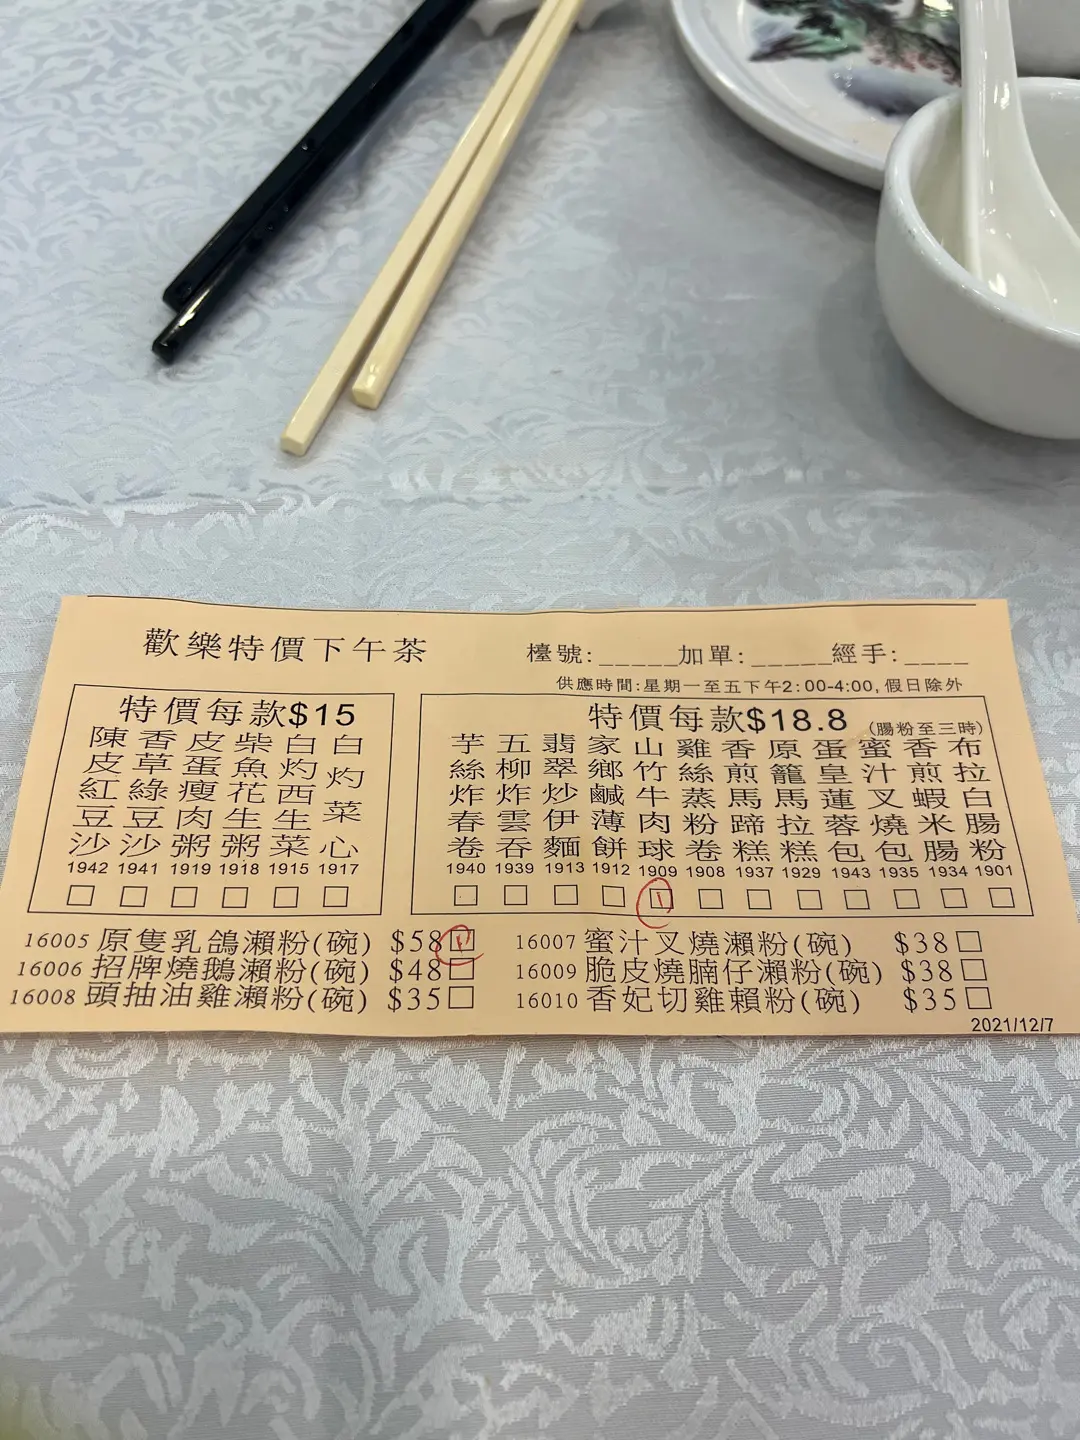 歡樂特價下午茶
檯號:_____加單:_____經手:____
供應時間:星期一至五下午2:00-4:00,假日除外
特價每款$15
陳皮紅豆沙 1942
香草綠豆沙 1941
皮蛋瘦肉粥 1919
柴魚花生粥 1918
白灼西生菜 1915
白灼菜心 1917
特價每款$18.8 (腸粉至三時)
芋絲炸春卷 1940
五柳炸雲吞 1939
翡翠炒伊麵 1913
家鄉鹹薄餅 1912
山竹牛肉球 1909 1
雞絲蒸粉卷 1908
香煎馬蹄糕 1937
原籠馬拉糕 1929
蛋皇蓮蓉包 1943
蜜汁叉燒包 1935
香煎蝦米腸 1934
布拉白腸粉 1901
16005 原隻乳鴿瀨粉(碗) $58 1
16006 招牌燒鵝瀨粉(碗) $48
16008 頭抽油雞瀨粉(碗) $35
16007 蜜汁叉燒瀨粉(碗) $38
16009 脆皮燒腩仔瀨粉(碗) $38
16010 香妃切雞賴粉(碗) $35
2021/12/7